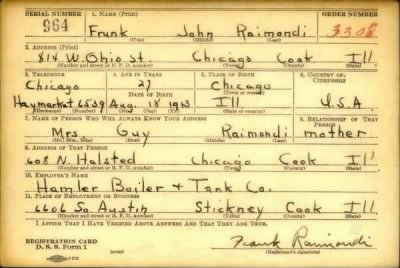 SERIAL NUMBER 1. NAME (Print) ORDER NUMBER
964 Frank John Raimondi 3308
(First) (Middle) (Last)
2. ADDRESS (Print)
814 W. Ohio St. Chicago Cook Ill.
(Number and street or R. F. D. number) (Town) (County) (State)
3. TELEPHONE 4. AGE IN YEARS 5. PLACE OF BIRTH 6. COUNTRY OF CITIZENSHIP
Chicago 27 Chicago
DATE OF BIRTH (Town or county)
Haymarket 6539 Aug. 18 1913 Ill U.S.A.
(Exchange) (Number) (Mo.) (Day) (Yr.) (State or country)
7. NAME OF PERSON WHO WILL ALWAYS KNOW YOUR ADDRESS 8. RELATIONSHIP OF THAT PERSON
Mrs. Guy Raimondi mother
(Mr., Mrs., Miss) (First) (Middle) (Last)
9. ADDRESS OF THAT PERSON
608 N. Halsted Chicago Cook Ill
(Number and street or R. F. D. number) (Town) (County) (State)
10. EMPLOYER'S NAME
Hamler Boiler + Tank Co.
11. PLACE OF EMPLOYMENT OR BUSINESS
6606 So. Austin Stickney Cook Ill
(Number and street or R. F. D. number) (Town) (County) (State)
I AFFIRM THAT I HAVE VERIFIED ABOVE ANSWERS AND THAT THEY ARE TRUE.
REGISTRATION CARD
D. S. S. Form 1 (over) Frank Raimondi
(Registrant's signature)